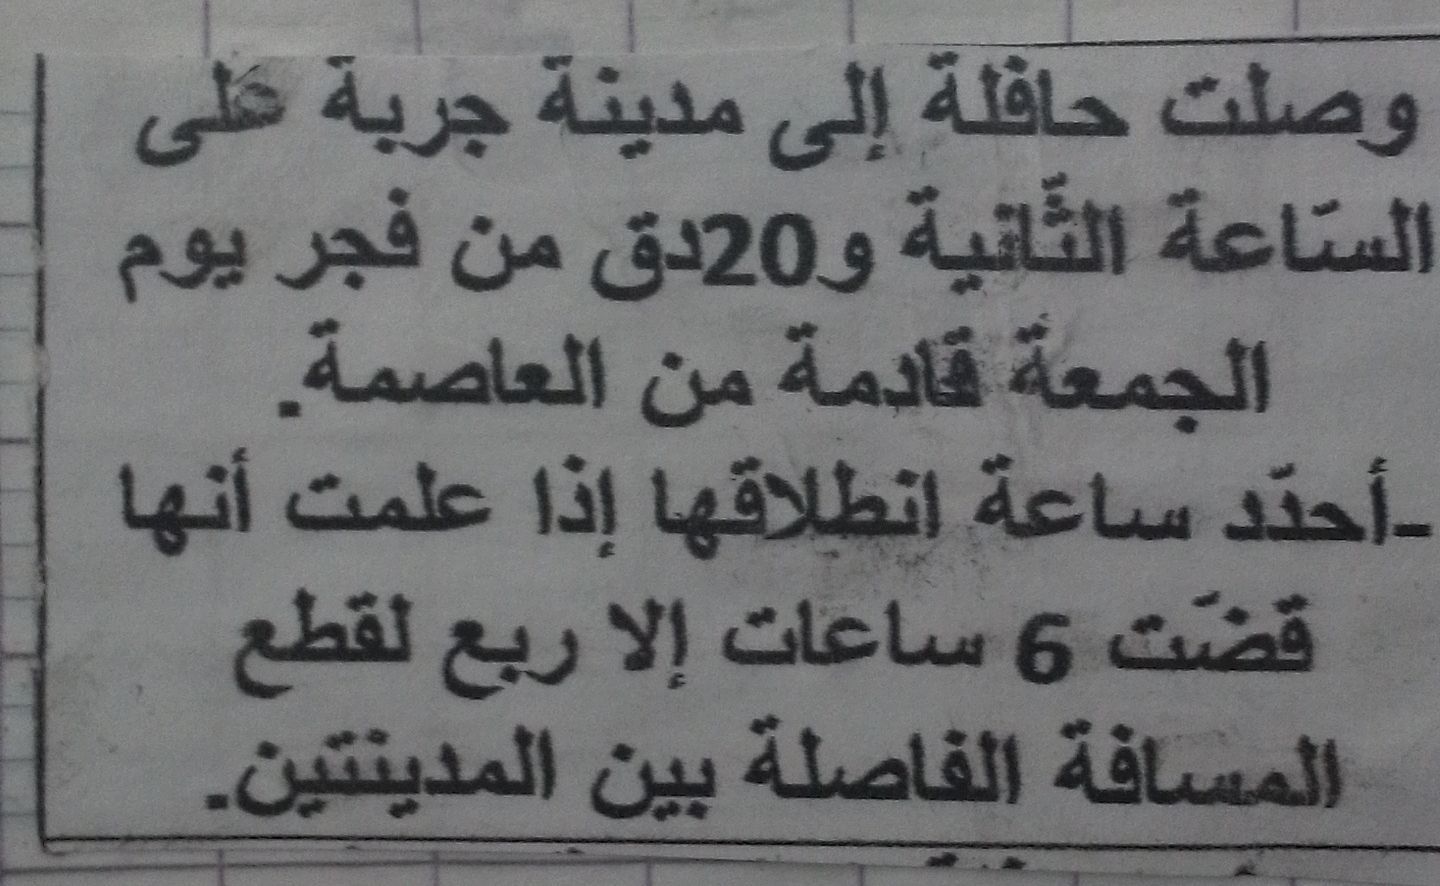 وصلت حافلة إلى مدينة جربة على
السّاعة الثّانية و20دق من فجر يوم
الجمعة قادمة من العاصمة.
-أحدّد ساعة انطلاقها إذا علمت أنها
قضّت 6 ساعات إلا ربع لقطع
المسافة الفاصلة بين المدينتين.